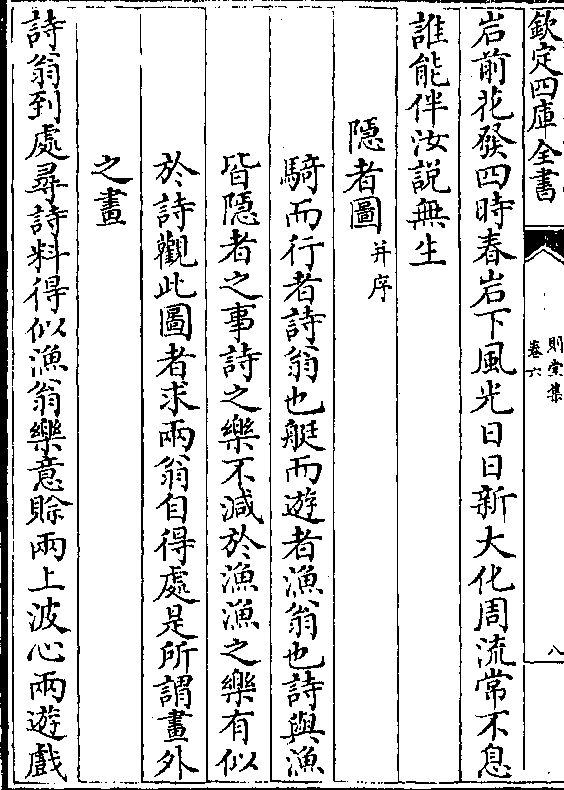 欽定四庫全書
則堂集
卷六
八
岩前花發四時春岩下風光日日新大化周流常不息
誰能伴汝說無生
隱者圖并序
騎而行者詩翁也艇而遊者漁翁也詩與漁
皆隱者之事詩之樂不減於漁漁之樂有似
於詩觀此圖者求兩翁自得處是所謂畫外
之畫
詩翁到處尋詩料得似漁翁樂意賒兩上波心兩遊戲